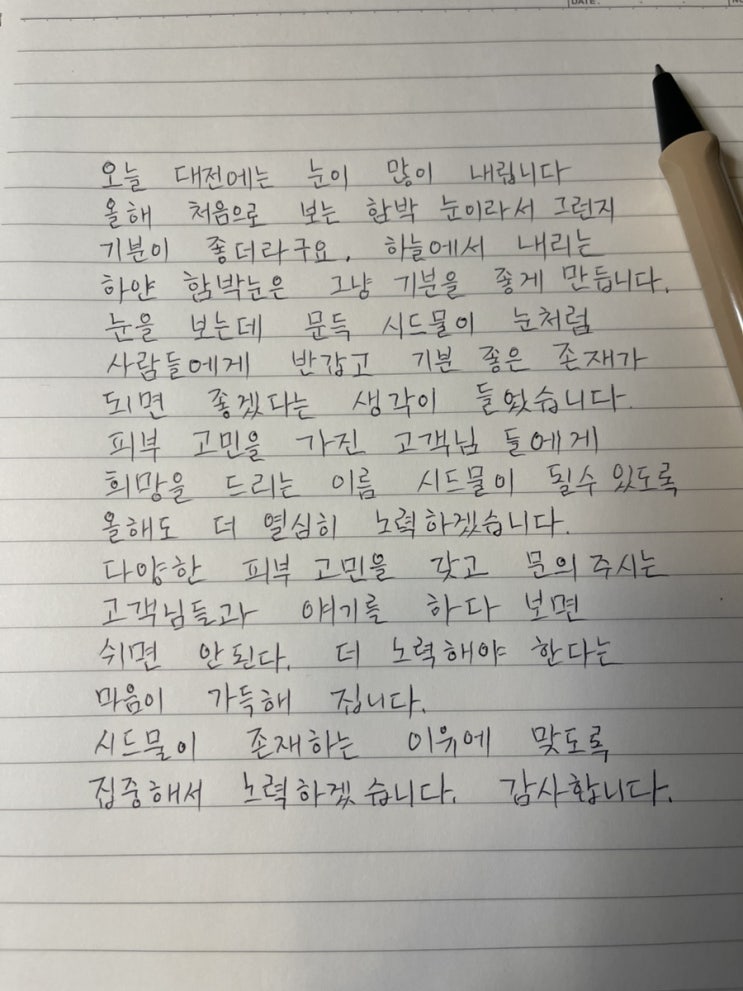 DATE.
오늘 대전에는 눈이 많이 내립니다
올해 처음으로 보는 함박 눈이라서 그런지
기분이 좋더라구요, 하늘에서 내리는
하얀 함박눈은 그냥 기분을 좋게 만듭니다.
눈을 보는데 문득 시드물이 눈처럼
사람들에게 반갑고 기분 좋은 존재가
되면 좋겠다는 생각이 들었습니다.
피부 고민을 가진 고객님 들에게
희망을 드리는 이름 시드물이 될수 있도록
올해도 더 열심히 노력하겠습니다.
다양한 피부 고민을 갖고 문의 주시는
고객님들과 얘기를 하다 보면
쉬면 안된다. 더 노력해야 한다는
마음이 가득해 집니다.
시드물이 존재하는 이유에 맞도록
집중해서 노력하겠 습니다. 감사합니다.